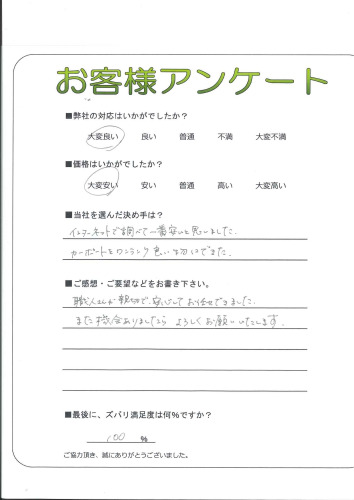 お客様アンケート
■弊社の対応はいかがでしたか？
大変良い 良い 普通 不満 大変不満
■価格はいかがでしたか？
大変安い 安い 普通 高い 大変高い
■当社を選んだ決め手は？
インターネットで調べて一番安いと思いました。
カーポートをワンランク良い物にできた。
■ご感想・ご要望などをお書き下さい。
職人さんが親切で安心してお任せできました。
また機会ありましたら よろしくお願いいたします。
■最後に、ズバリ満足度は何％ですか？
100 ％
ご協力頂き、誠にありがとうございました。